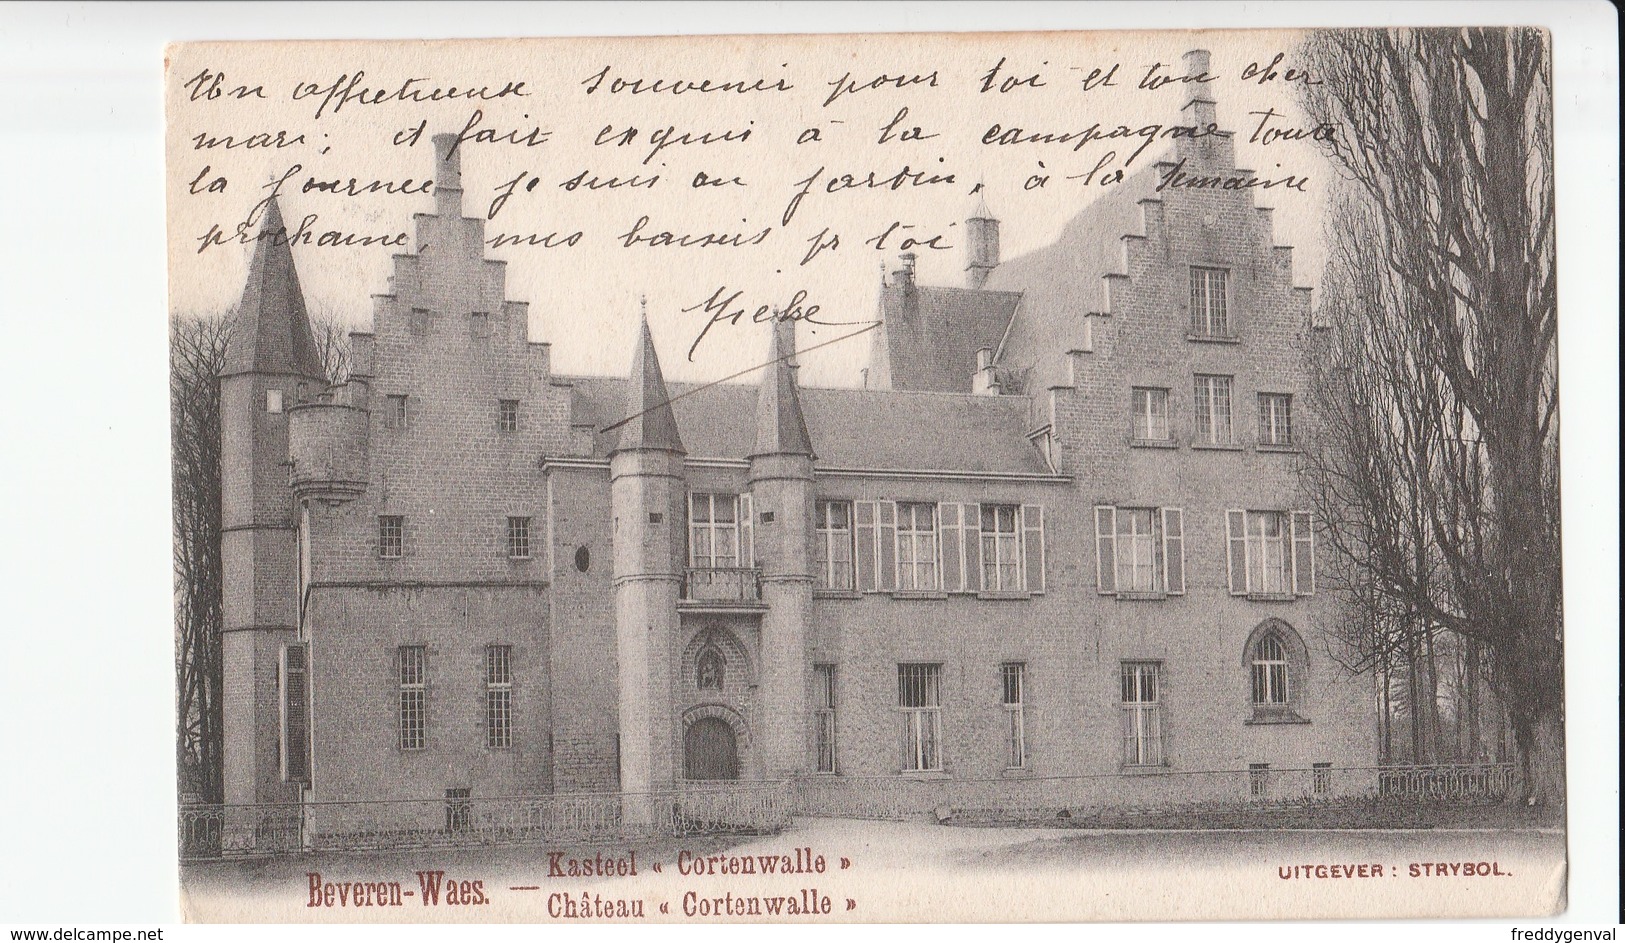 Un affectueux souvenir pour toi et ton cher
mari; il fait exquis à la campagne toute
la journée je suis au jardin, à la semaine
prochaine, mes baisers pr toi
Beveren-Waes. — Kasteel « Cortenwalle »
Château « Cortenwalle »
UITGEVER : STRYBOL.
www.delcampe.net
freddygenval